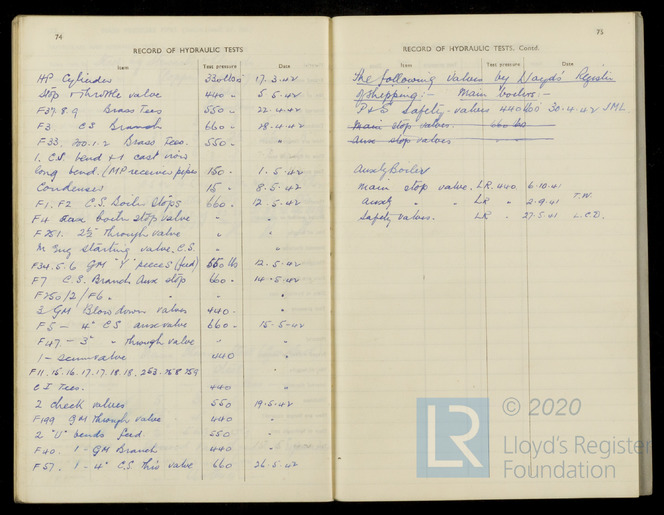 74
RECORD OF HYDRAULIC TESTS
Item Test pressure Date
HP Cylinder 330 lbs 17.3.42
Stop & throttle valve 440 - 5.5.42
F37.8.9 Brass Tees 550 - 22.4.42
F3. CS Branch 660 - 28.4.42
F33. 200.1.2 Brass Tees. 550 - "
1. C.S. bend & 1 cast iron
long bend. (MP receiver pipes 150 - 1.5.42
Condenser 15 " 8.5.42
F1. F2 C.S. Boiler Stops 660 - 12.5.42
F4 aux boiler stop valve " "
F251. 2½" through valve " "
M Eng starting valve. C.S. " "
F34.5.6 GM "Y" pieces (feed) 550 lbs 12.5.42
F7 C.S. Branch Aux stop 660 " 14.5.42
F250/2/F6. " " "
3 GM Blow down valves 440 - "
F5 - 4" CS aux valve 660 - 15-5-42
F47 - 3" " through valve " "
1 - valve 440 "
F11.15.16.17.17.18.18.253.258 259
C I Tees. 440 "
2 check valves 550 19.5.42
F199 GM through valve 440 "
2 "U" bends feed 550 "
F40. 1 - GM Branch 440 "
F57. 1 - 4" C.S. this valve 660 26.5.42
75
RECORD OF HYDRAULIC TESTS. Contd.
Item Test pressure Date
The following valves by Lloyd's Register
of Shipping:- Main boilers.-
P&S Safety valves 440 lbs 30.4.42 JML
Main stop valves. 660 lbs
Aux stop valves - -
Auxly Boiler
Main stop valve. LR. 440. 6.10.41
Auxly " " LR " 2.9.41 T.W.
Safety valves. LR " 27.5.41 L.C.D.
LR © 2020
Lloyd's Register
Foundation